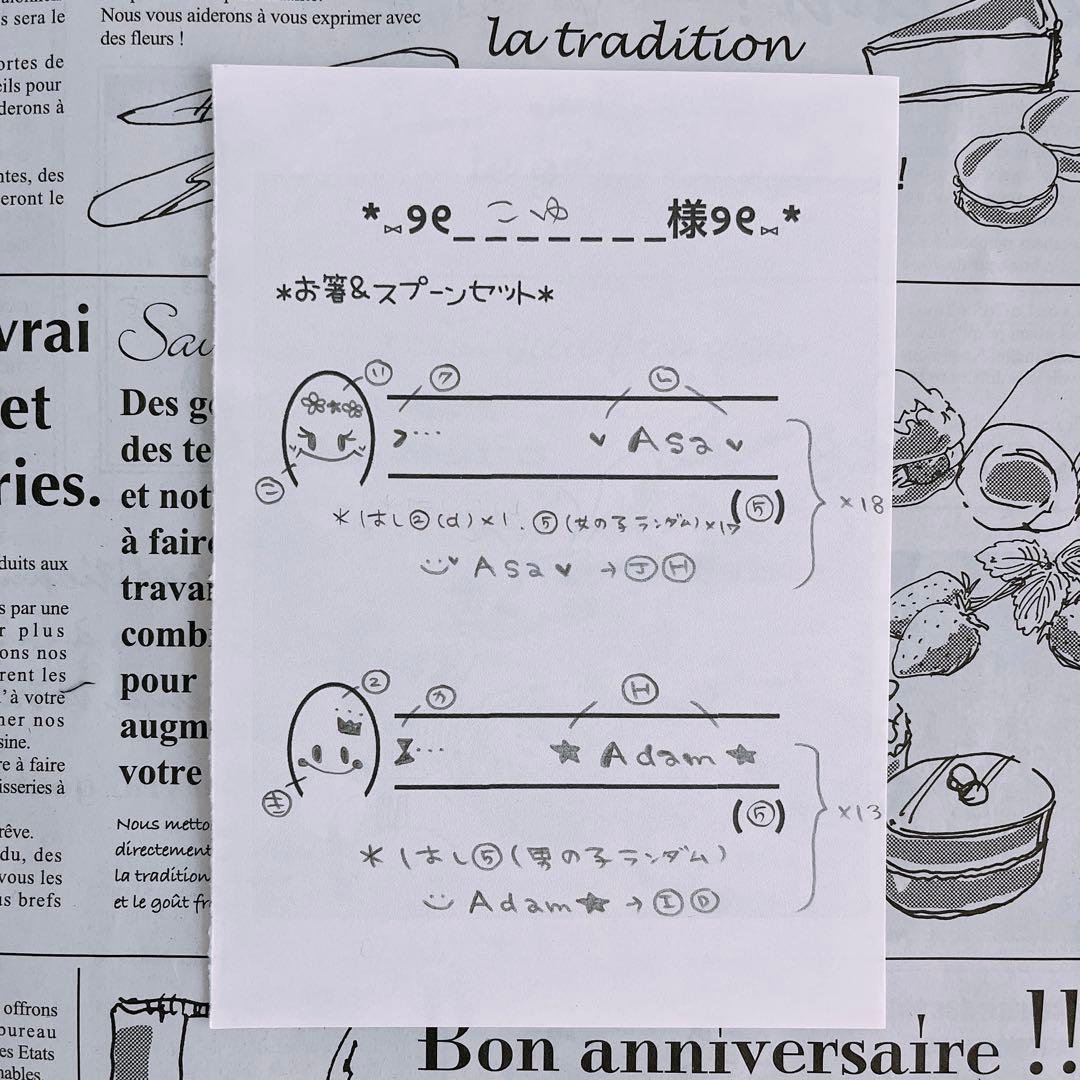 Nous vous aiderons à vous exprimer avec
des fleurs !
la tradition
s sera le
ortes de
eils pour
derons à
ntes, des
eront le
!
*꒷୨୧_こゆ_様୨୧꒷*
*お箸&スプーンセット*
vrai
et
ries.
Sau
Des g
des te
et not
à faire
travai
combi
pour
augm
votre
リ ク ム
>… ♥ Asa ♥
ニ
(⑤) ×18
*はし②(d)×1、⑤(女の子ランダム)×17
Asa♥ →ⒿⒽ
② カ Ⓗ
… ★ Adam ★
キ
(⑤) ×13
*はし⑤(男の子ランダム)
Adam★→ⒾⒹ
duits aux
s par une
r plus
ons nos
rent les
'à votre
ner nos
sine.
re à faire
isseries à
rêve.
du, des
vous les
us brefs
Nous metto
directement
la tradition
et le goût fr
offrons
bureau
es Etats
nables.
Bon anniversaire !!